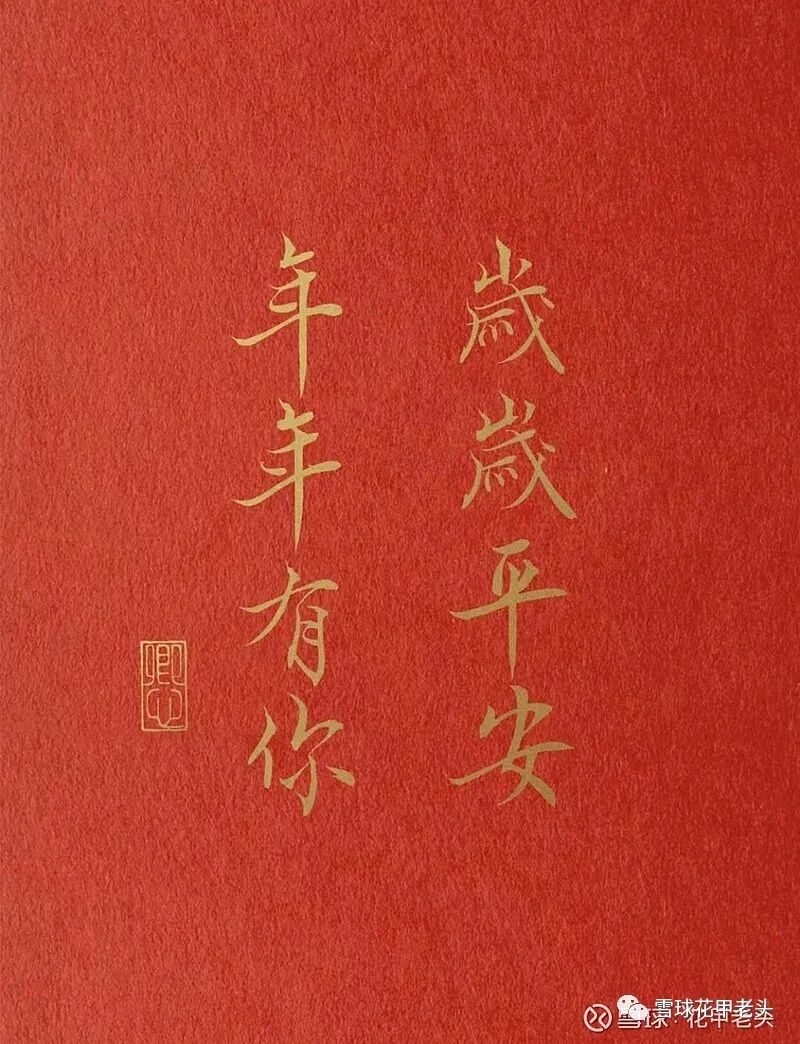 歲歲平安
年年有你
卿心
雪球花甲老头
雪球：花甲老头